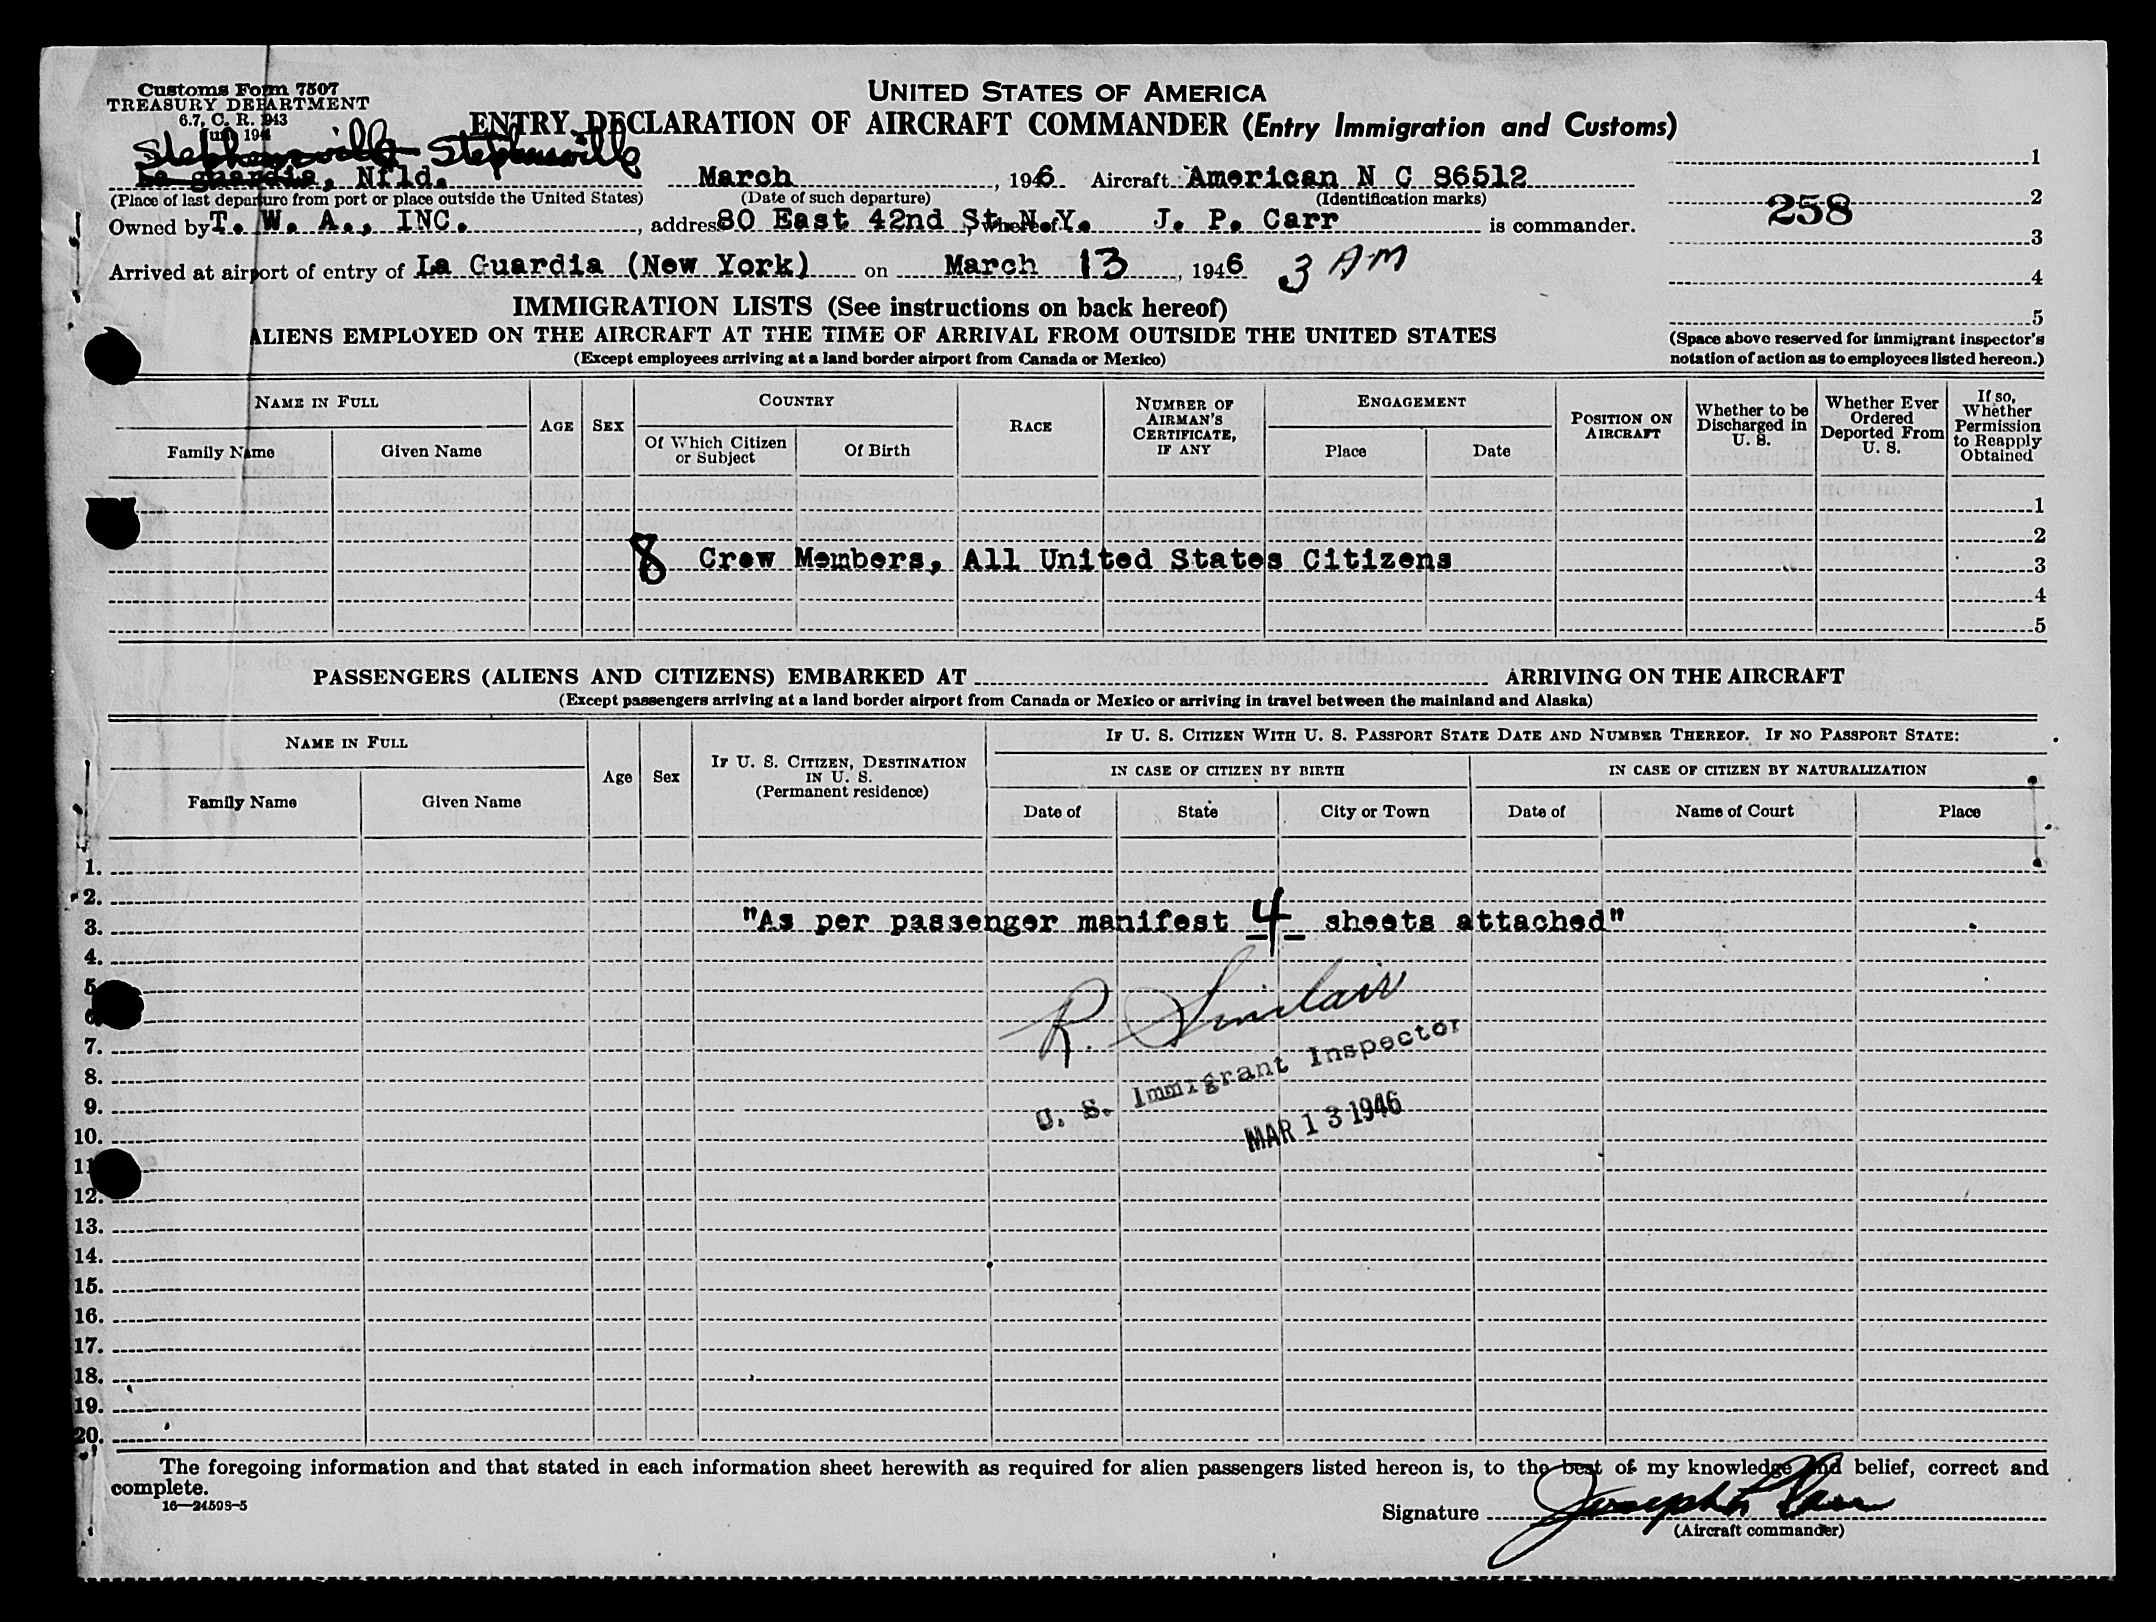 Customs Form 7507
TREASURY DEPARTMENT
6.7, C. R. 943
June 194
UNITED STATES OF AMERICA
ENTRY DECLARATION OF AIRCRAFT COMMANDER (Entry Immigration and Customs)
Stephensville Stephensville
La guardia, Nfld. March , 1946 Aircraft American N C 86512
(Place of last departure from port or place outside the United States) (Date of such departure) (Identification marks)
Owned by T. W. A., INC. , address 80 East 42nd St. N.Y. , whereof J. P. Carr is commander.
Arrived at airport of entry of La Guardia (New York) on March 13 , 1946 3 AM
1
2
258
3
4
5
(Space above reserved for immigrant inspector's
notation of action as to employees listed hereon.)
IMMIGRATION LISTS (See instructions on back hereof)
ALIENS EMPLOYED ON THE AIRCRAFT AT THE TIME OF ARRIVAL FROM OUTSIDE THE UNITED STATES
(Except employees arriving at a land border airport from Canada or Mexico)
NAME IN FULL
Family Name Given Name
AGE
SEX
COUNTRY
Of Which Citizen or Subject
Of Birth
RACE
NUMBER OF AIRMAN'S CERTIFICATE, IF ANY
ENGAGEMENT
Place Date
POSITION ON AIRCRAFT
Whether to be Discharged in U. S.
Whether Ever Ordered Deported From U. S.
If so, Whether Permission to Reapply Obtained
1
2
8 Crew Members, All United States Citizens 3
4
5
PASSENGERS (ALIENS AND CITIZENS) EMBARKED AT ARRIVING ON THE AIRCRAFT
(Except passengers arriving at a land border airport from Canada or Mexico or arriving in travel between the mainland and Alaska)
NAME IN FULL
Family Name Given Name
Age
Sex
IF U. S. CITIZEN, DESTINATION IN U. S.
(Permanent residence)
IF U. S. CITIZEN WITH U. S. PASSPORT STATE DATE AND NUMBER THEREOF. IF NO PASSPORT STATE:
IN CASE OF CITIZEN BY BIRTH
Date of State City or Town
IN CASE OF CITIZEN BY NATURALIZATION
Date of Name of Court Place
1.
2.
3. "As per passenger manifest 4 sheets attached"
4.
5.
6.
R. Sinclair
7.
8.
U. S. Immigrant Inspector
9.
MAR 13 1946
10.
11
12.
13.
14.
15.
16.
17.
18.
19.
20.
The foregoing information and that stated in each information sheet herewith as required for alien passengers listed hereon is, to the best of my knowledge and belief, correct and
complete.
16—24598-5
Signature Joseph P. Carr
(Aircraft commander)